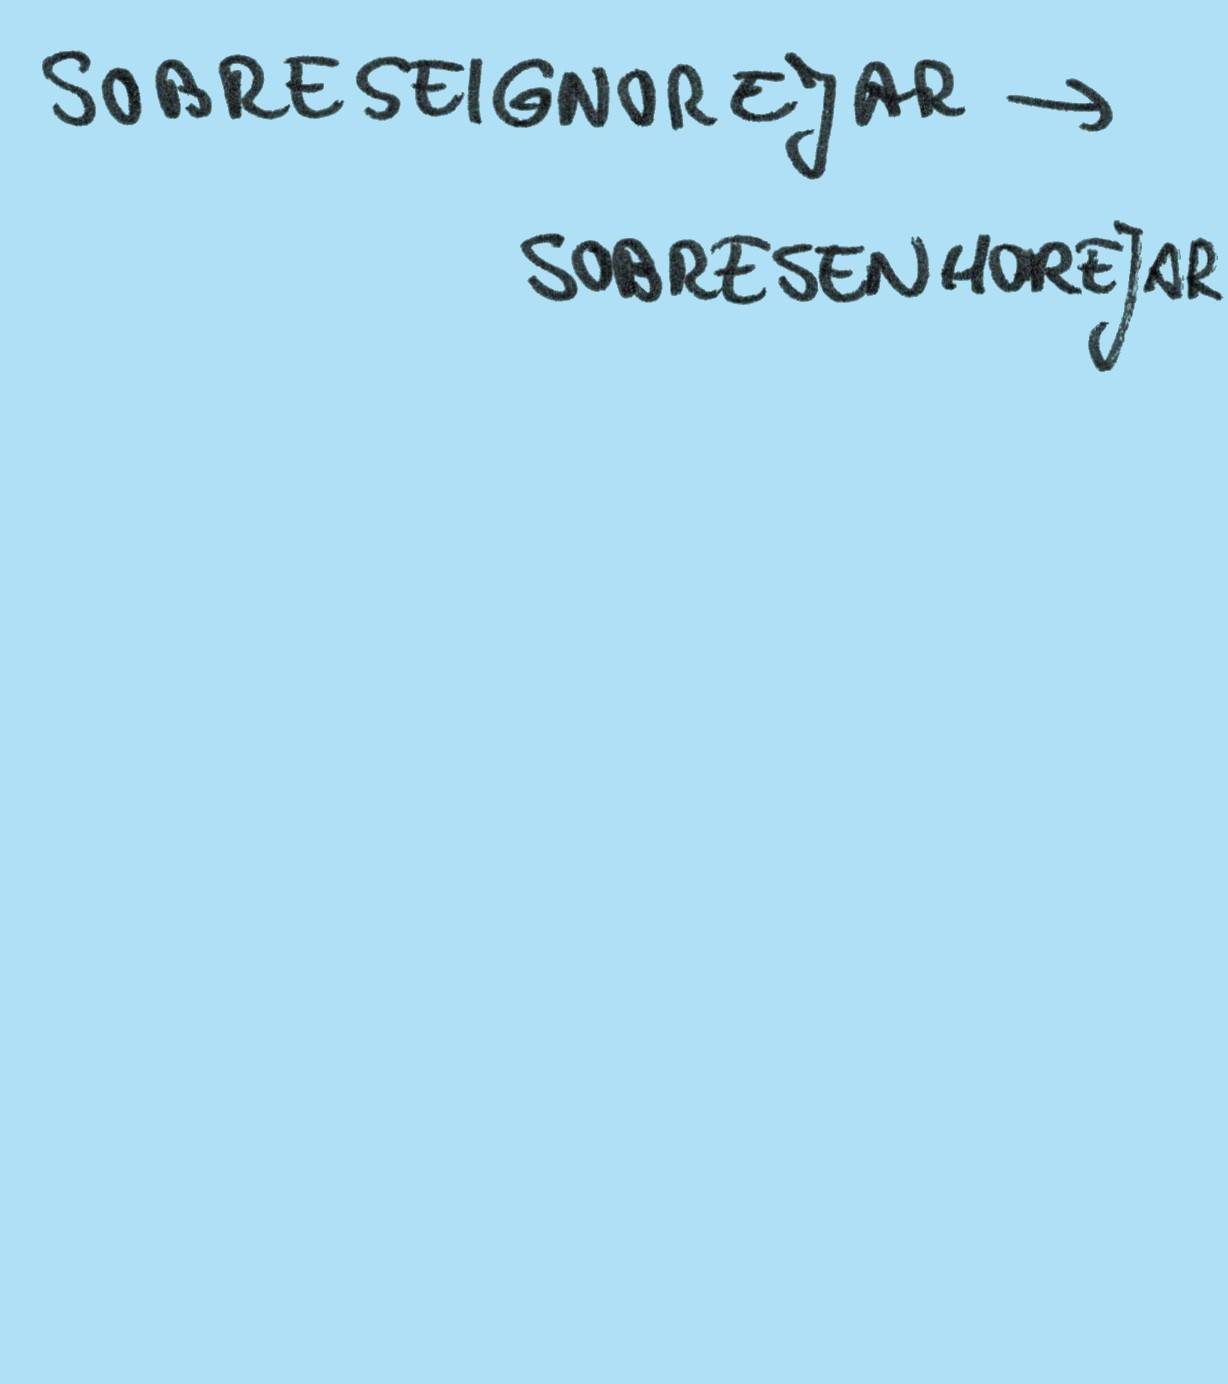 SOBRESEIGNOREJAR →
SOBRESENHOREJAR